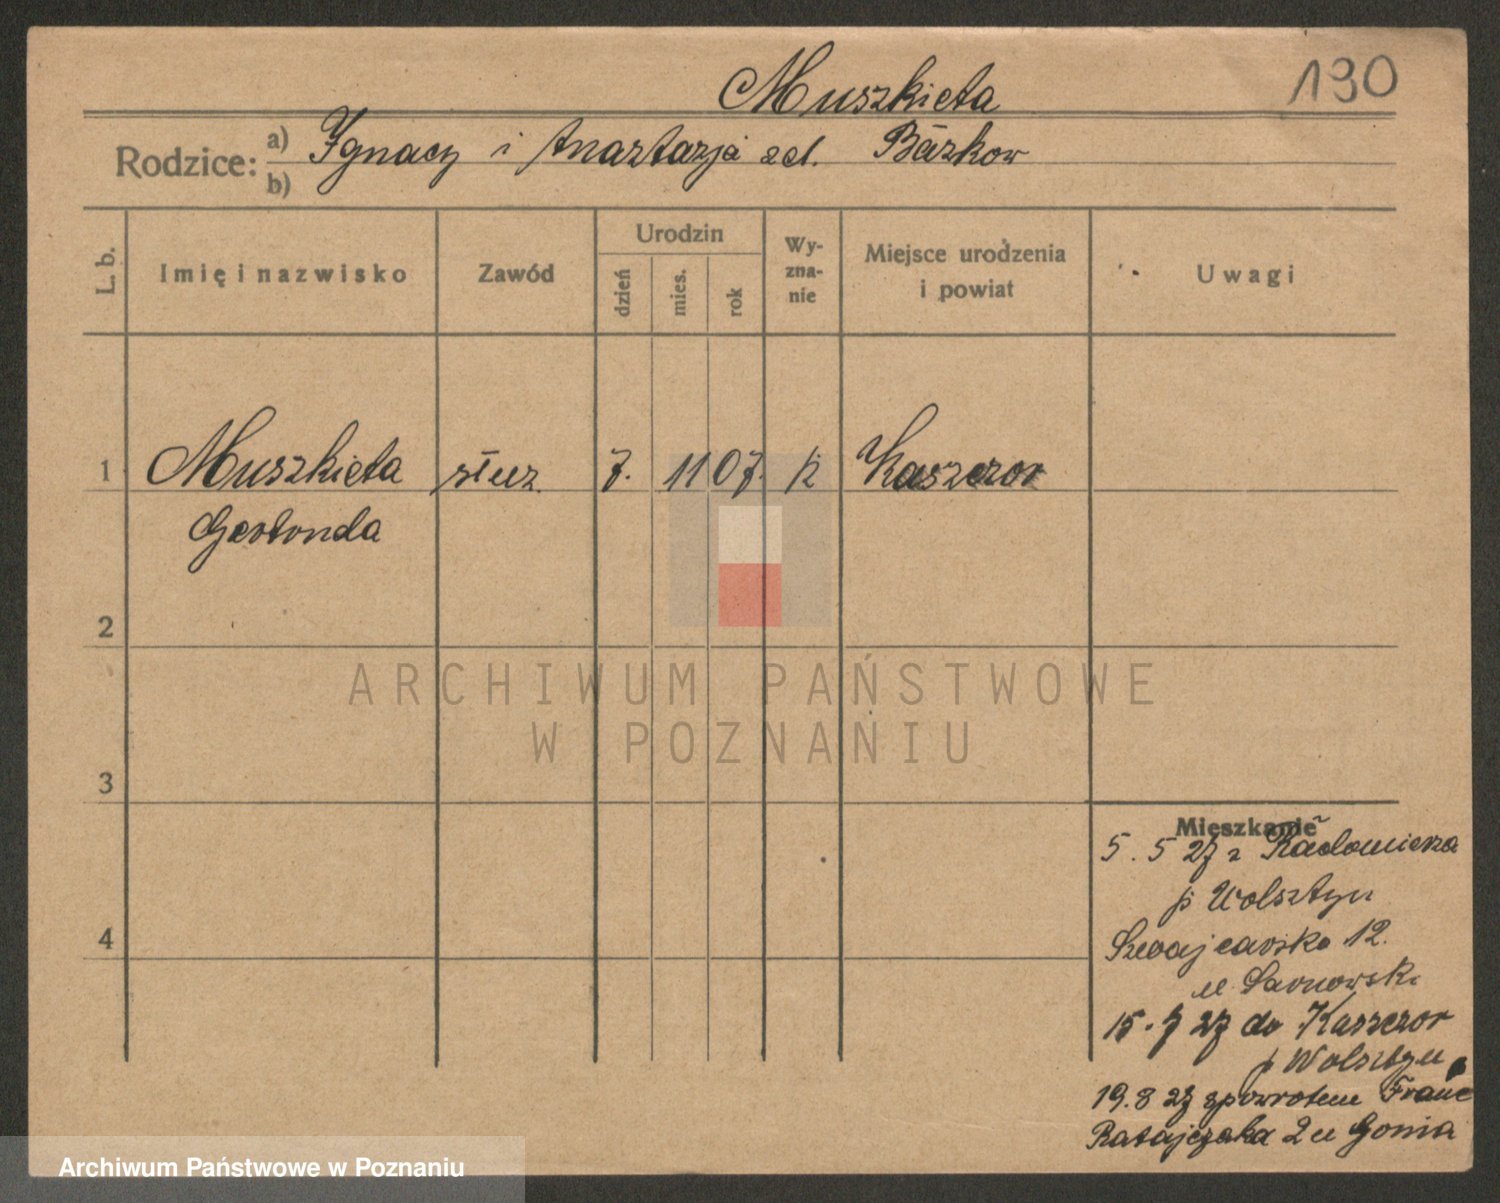 Muszkieta
190
Rodzice:
a) Ignacy i Anastazja zd.
b)
L. b.
Imię i nazwisko
Zawód
Urodzin
dzień
mies.
rok
Wy-
zna-
nie
Miejsce urodzenia
i powiat
Uwagi
1 Muszkieta służ. 7. 11 07. k Kaszczor
2
3
4
Mieszkanie
5. 5 27 z
p Wolsztyn
12.
u Sarnowski
15. 7 27 do Kaszczor
p Wolsztyn
19. 8 27 spowrotem Franc
Ratajczaka 2 u
ARCHIWUM PAŃSTWOWE
W POZNANIU
Archiwum Państwowe w Poznaniu